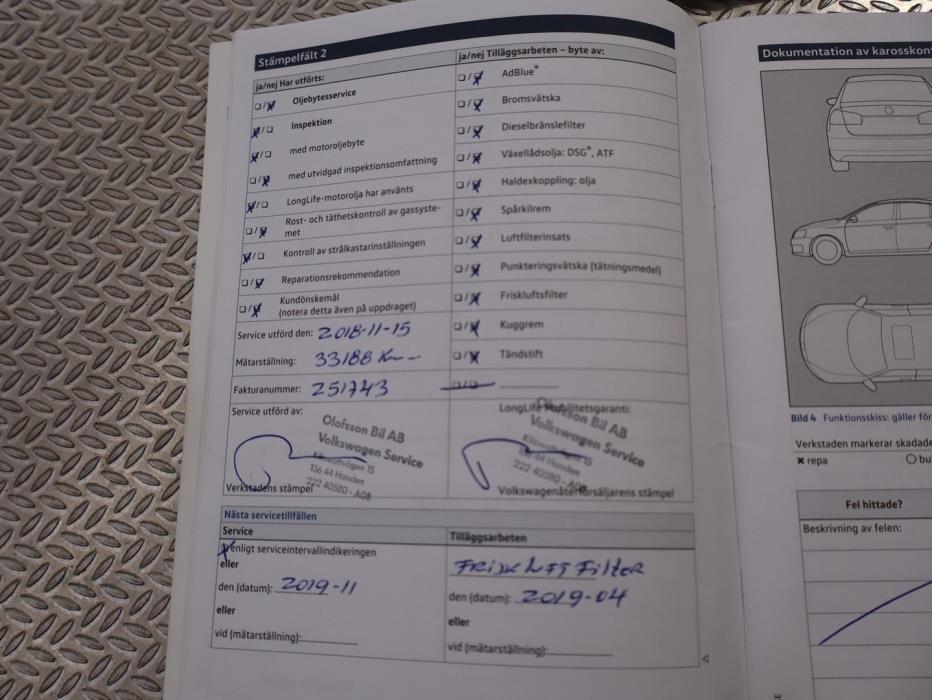 Stämpelfält 2
ja/nej Har utförts:
Oljebytesservice
Inspektion
med motoroljebyte
med utvidgad inspektionsomfattning
LongLife-motorolja har använts
Rost- och täthetskontroll av gassyste-
met
Kontroll av strålkastarinställningen
Reparationsrekommendation
Kundönskemål
(notera detta även på uppdraget)
Service utförd den: 2018-11-15
Mätarställning: 33188 Km
Fakturanummer: 251743
Service utförd av:
Olofsson Bil AB
Volkswagen Service
136 44 Handen
222 40580 - A08
Verkstadens stämpel
ja/nej Tilläggsarbeten – byte av:
AdBlue®
Bromsvätska
Dieselbränslefilter
Växellådsolja: DSG®, ATF
Haldexkoppling: olja
Spårkilrem
Luftfilterinsats
Punkteringsvätska (tätningsmedel)
Friskluftsfilter
Kuggrem
Tändstift
LongLife Mobilitetsgaranti:
Olofsson Bil AB
Volkswagen Service
136 44 Handen
222 40580 - A08
Volkswagenåterförsäljarens stämpel
Nästa servicetillfällen
Service
enligt serviceintervallindikeringen
eller
den (datum): 2019-11
eller
vid (mätarställning):
Tilläggsarbeten
Filter
den (datum): 2019-04
eller
vid (mätarställning):
Dokumentation av karosskon
Bild 4 Funktionsskiss: gäller för
Verkstaden markerar skadade
repa bu
Fel hittade?
Beskrivning av felen: